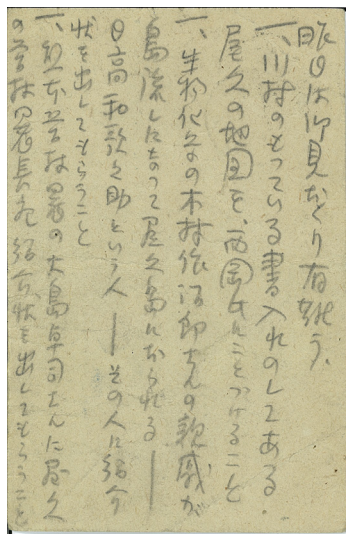 昨日は御見おくり有難う、
一、川村のもっている書入れのしてある、
屋久の地図を、西岡氏にことづけること
一、生物化学の木村作次郎さんの親戚が
島流しになって屋久島に居られる──
日高和歌之助という人──その人に紹介
状を出してもらうこと
一、熊本営林署の大島卓司さんに屋久
の営林署長宛紹介状を出してもらうこと